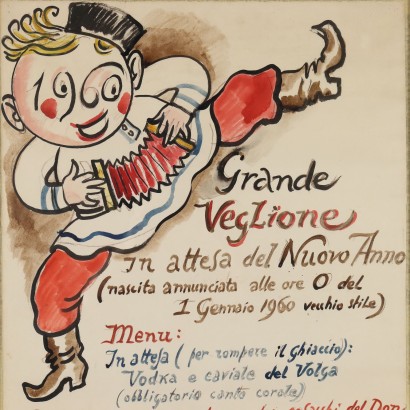 1960
Grande
Veglione
In attesa del Nuovo Anno
(nascita annunciata alle ore 0 del
1 Gennaio 1960 vecchio stile)
Menu:
In attesa (per rompere il ghiaccio):
Vodka e caviale del Volga
(obbligatorio canto corale)
del Don